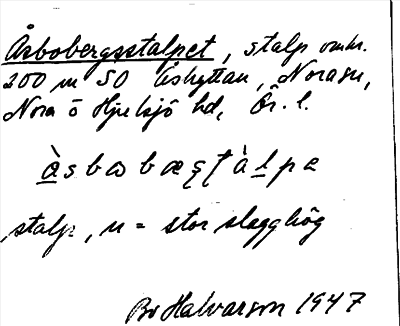 Åsbobergsstalpet, stalp omkr.
200 m SO Åshyttan, Norasn,
Nora o Hjulsjö hd, Ör. l.
àsbωbæςtàlpe
stalp, n = stor slagghög
Bo Halvarson 1947